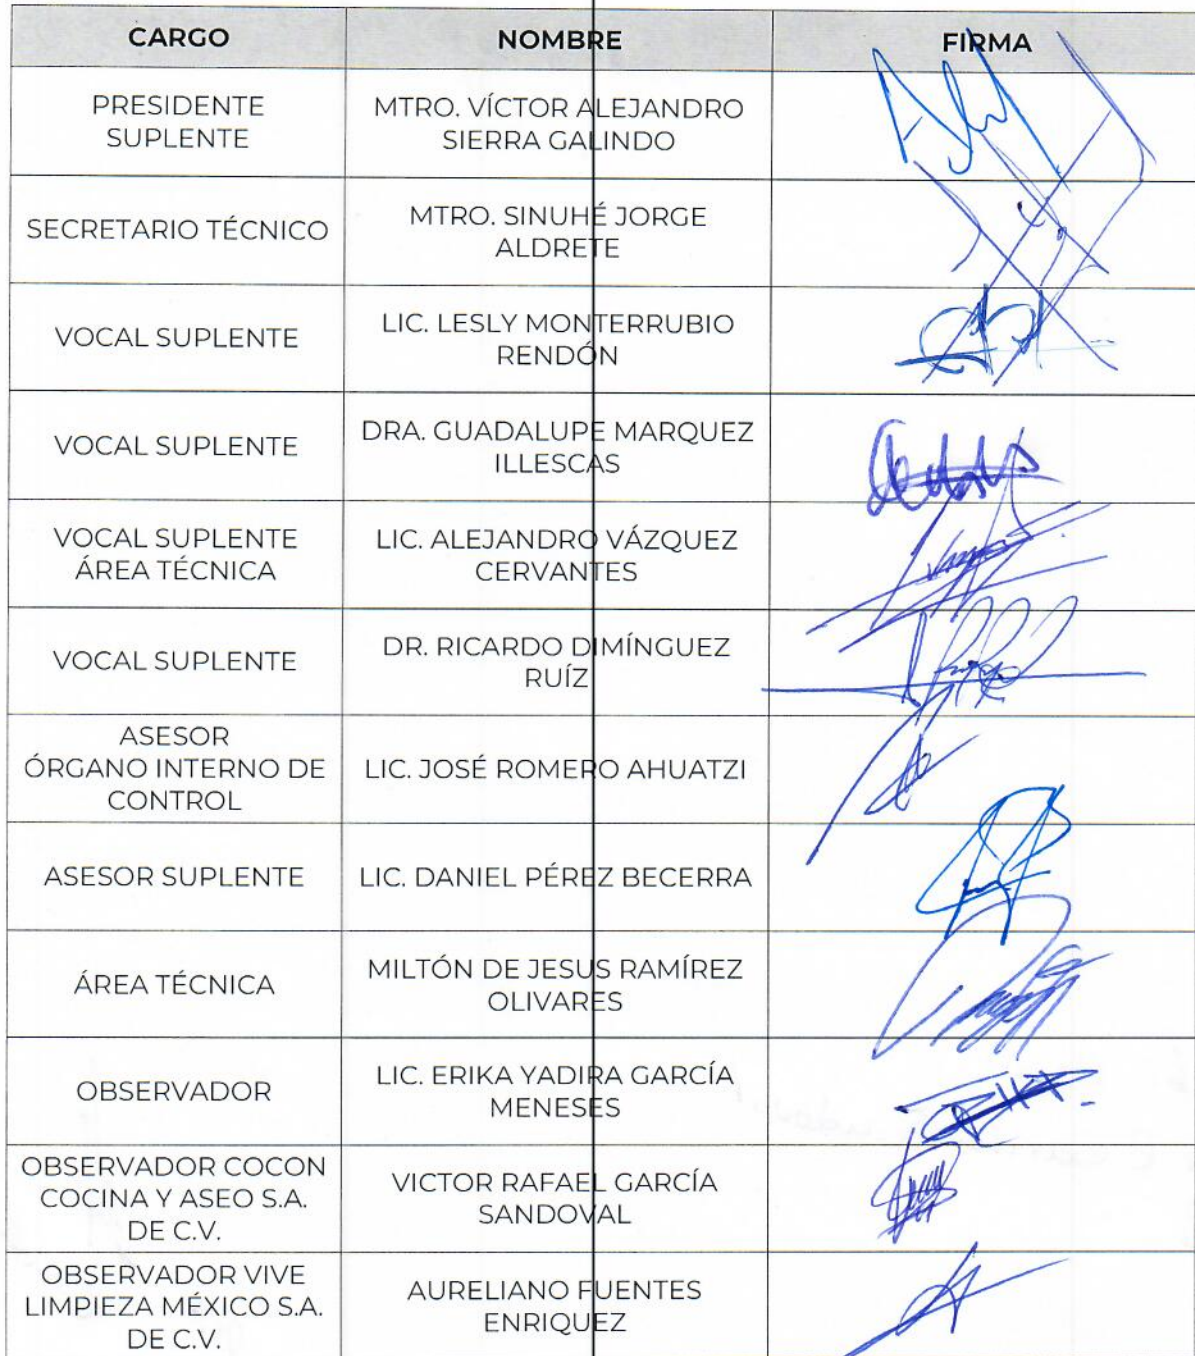 CARGO NOMBRE FIRMA
PRESIDENTE
SUPLENTE
MTRO. VÍCTOR ALEJANDRO
SIERRA GALINDO
SECRETARIO TÉCNICO
MTRO. SINUHÉ JORGE
ALDRETE
VOCAL SUPLENTE
LIC. LESLY MONTERRUBIO
RENDÓN
VOCAL SUPLENTE
DRA. GUADALUPE MARQUEZ
ILLESCAS
VOCAL SUPLENTE
ÁREA TÉCNICA
LIC. ALEJANDRO VÁZQUEZ
CERVANTES
VOCAL SUPLENTE
DR. RICARDO DIMÍNGUEZ
RUÍZ
ASESOR
ÓRGANO INTERNO DE
CONTROL
LIC. JOSÉ ROMERO AHUATZI
ASESOR SUPLENTE
LIC. DANIEL PÉREZ BECERRA
ÁREA TÉCNICA
MILTÓN DE JESUS RAMÍREZ
OLIVARES
OBSERVADOR
LIC. ERIKA YADIRA GARCÍA
MENESES
OBSERVADOR COCON
COCINA Y ASEO S.A.
DE C.V.
VICTOR RAFAEL GARCÍA
SANDOVAL
OBSERVADOR VIVE
LIMPIEZA MÉXICO S.A.
DE C.V.
AURELIANO FUENTES
ENRIQUEZ